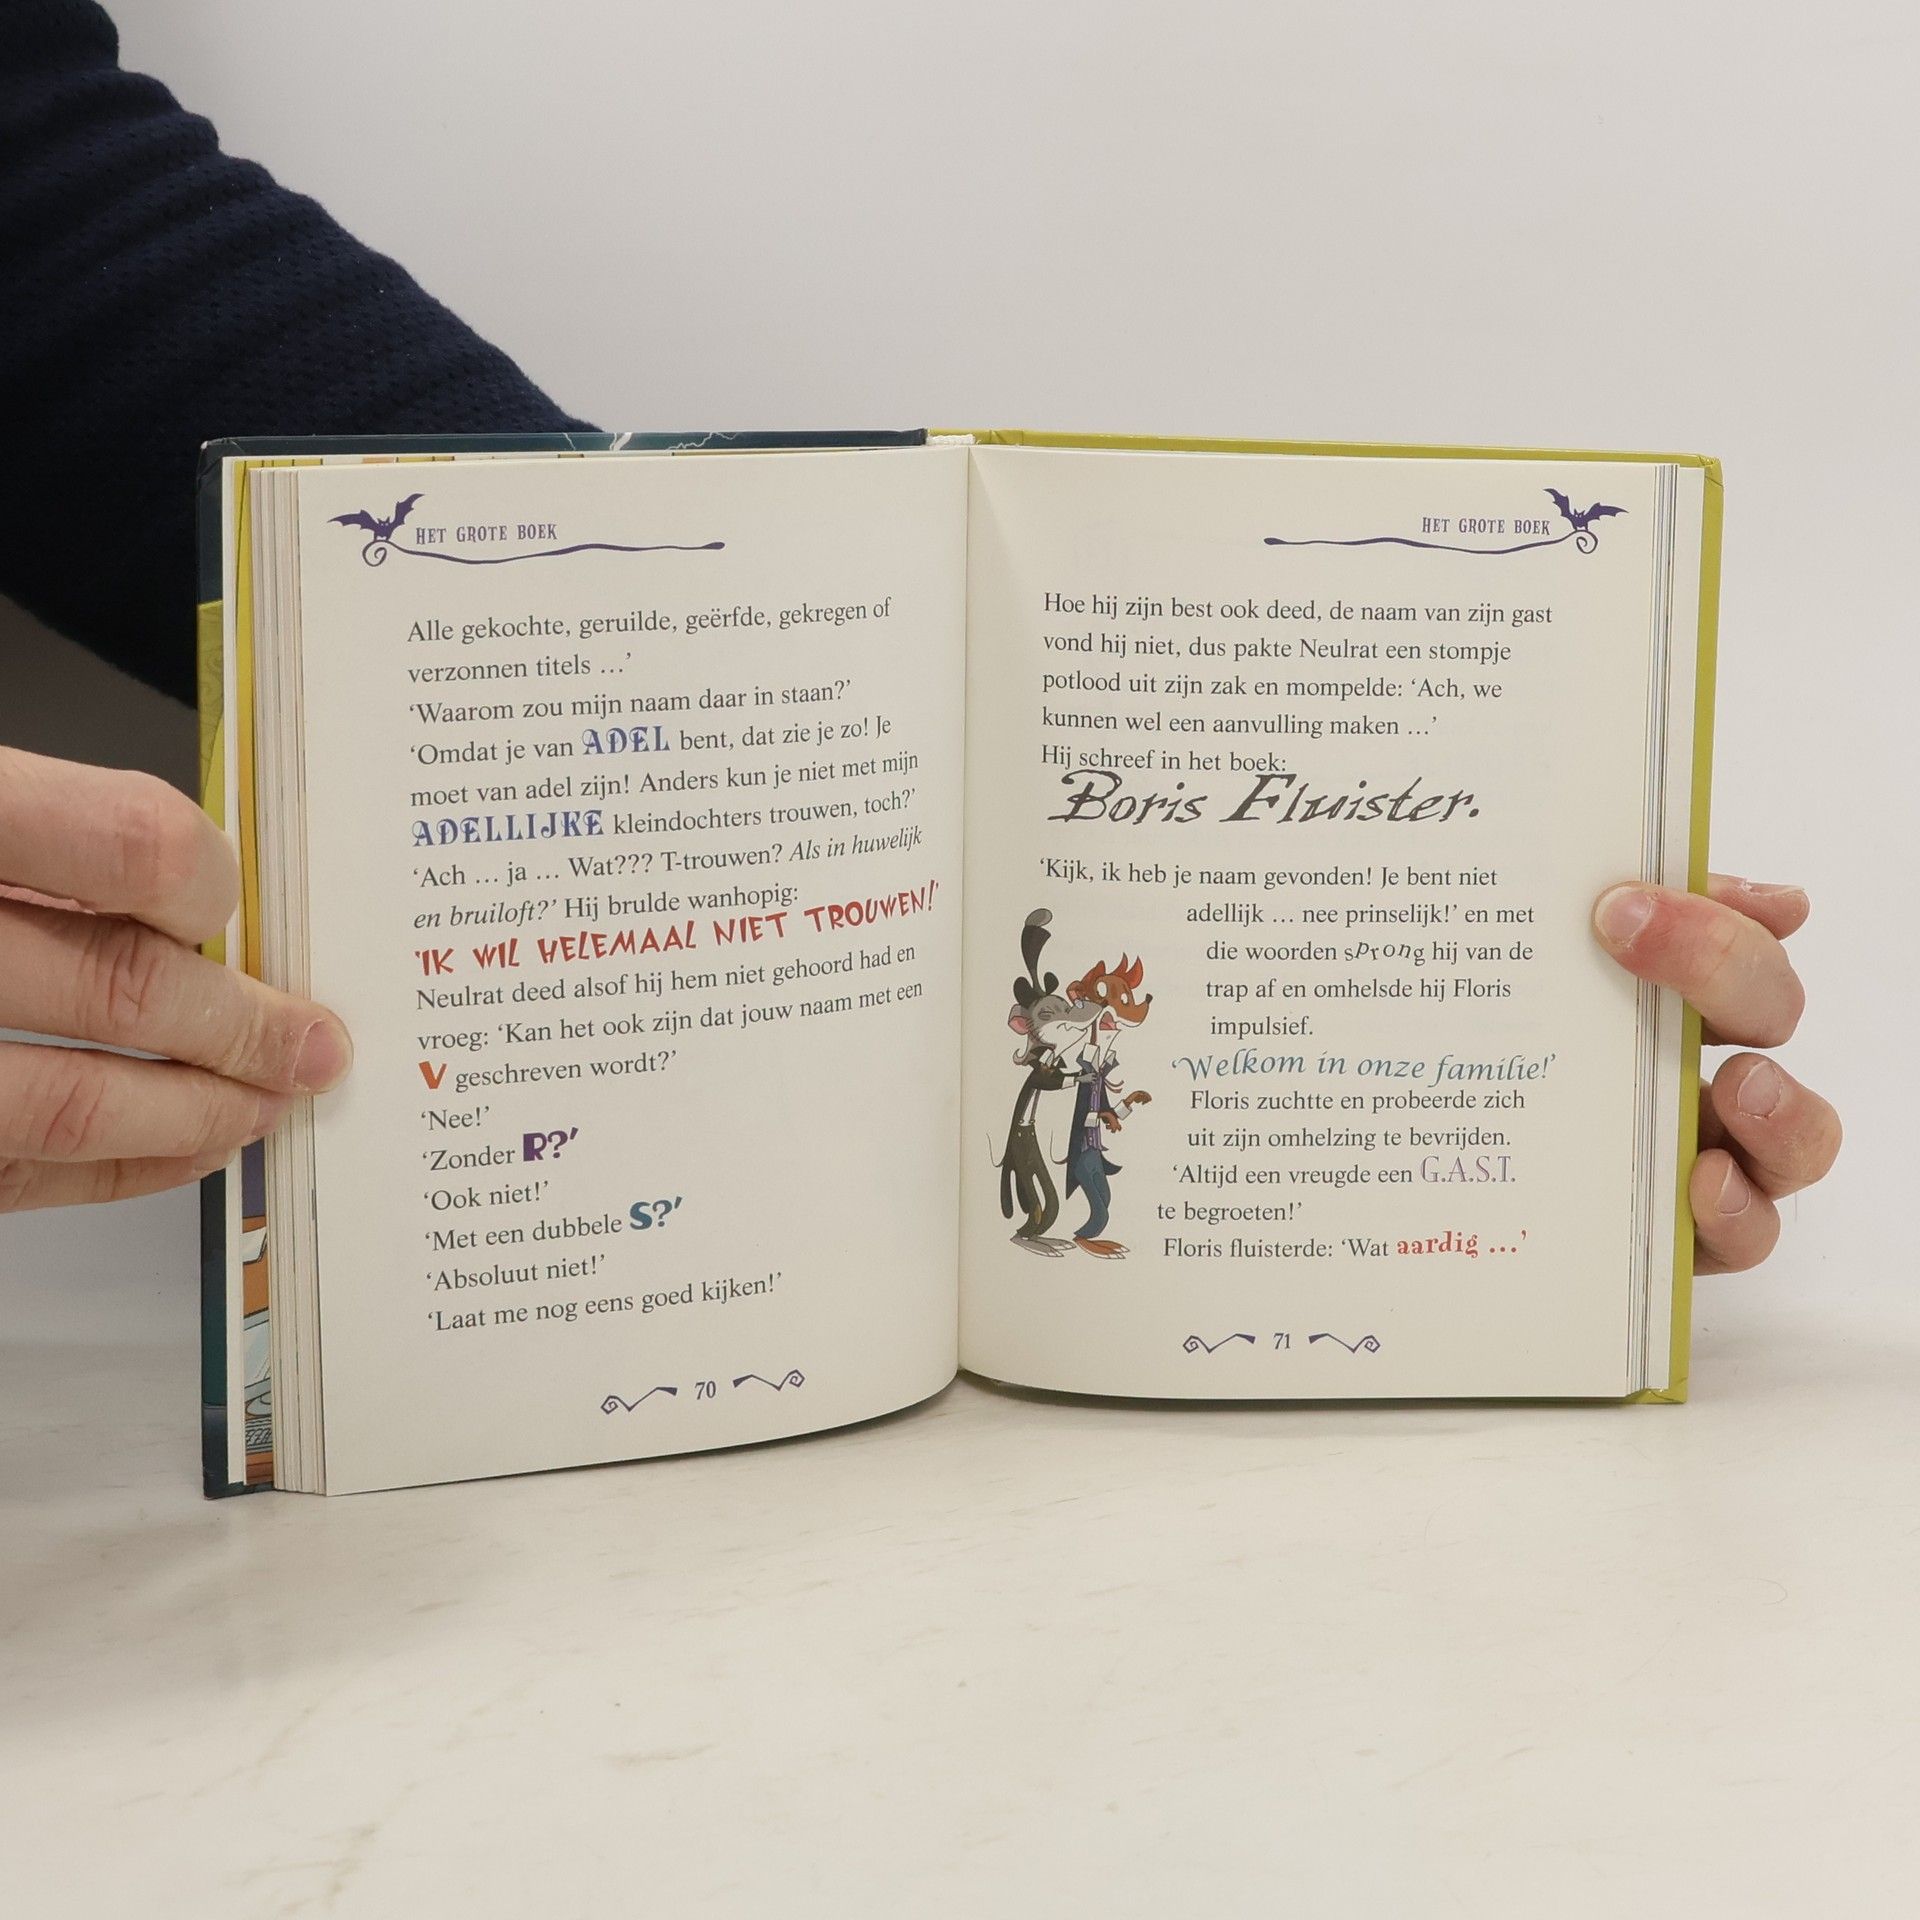 HET GROTE BOEK
Alle gekochte, geruilde, geërfde, gekregen of
verzonnen titels …’
‘Waarom zou mijn naam daar in staan?’
‘Omdat je van ADEL bent, dat zie je zo! Je
moet van adel zijn! Anders kun je niet met mijn
ADELLIJKE kleindochters trouwen, toch?’
‘Ach … ja … Wat??? T-trouwen? Als in huwelijk
en bruiloft?’ Hij brulde wanhopig:
‘IK WIL HELEMAAL NIET TROUWEN!’
Neulrat deed alsof hij hem niet gehoord had en
vroeg: ‘Kan het ook zijn dat jouw naam met een
V geschreven wordt?’
‘Nee!’
‘Zonder R?’
‘Ook niet!’
‘Met een dubbele S?’
‘Absoluut niet!’
‘Laat me nog eens goed kijken!’
70
HET GROTE BOEK
Hoe hij zijn best ook deed, de naam van zijn gast
vond hij niet, dus pakte Neulrat een stompje
potlood uit zijn zak en mompelde: ‘Ach, we
kunnen wel een aanvulling maken …’
Hij schreef in het boek:
Boris Fluister.
‘Kijk, ik heb je naam gevonden! Je bent niet
adellijk … nee prinselijk!’ en met
die woorden sprong hij van de
trap af en omhelsde hij Floris
impulsief.
‘Welkom in onze familie!’
Floris zuchtte en probeerde zich
uit zijn omhelzing te bevrijden.
‘Altijd een vreugde een G.A.S.T.
te begroeten!’
Floris fluisterde: ‘Wat aardig …’
71